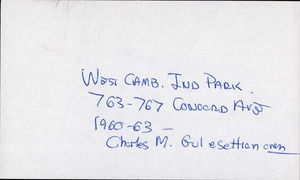 West CAMB. IND PARK.
763-767 CONCORD AVE
1960-63 -
Charles M. Gulesettian